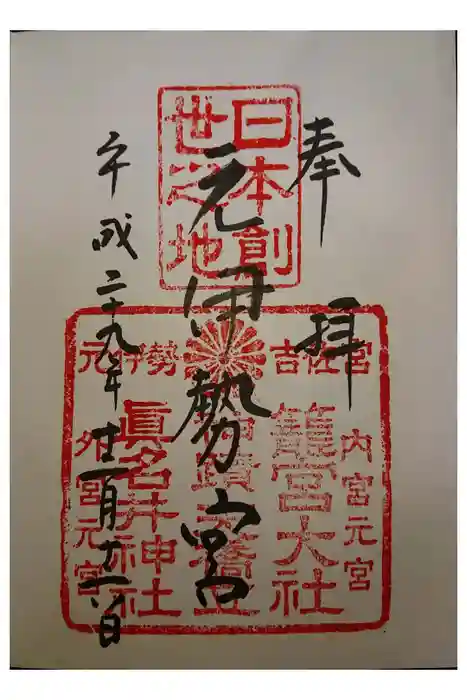 奉拝
日本創
世之地
元伊勢宮
元伊勢
吉佐宮
内宮元宮
籠宮大社
神蹟天橋立
眞名井神社
外宮元宮
平成二十九年十一月十六日